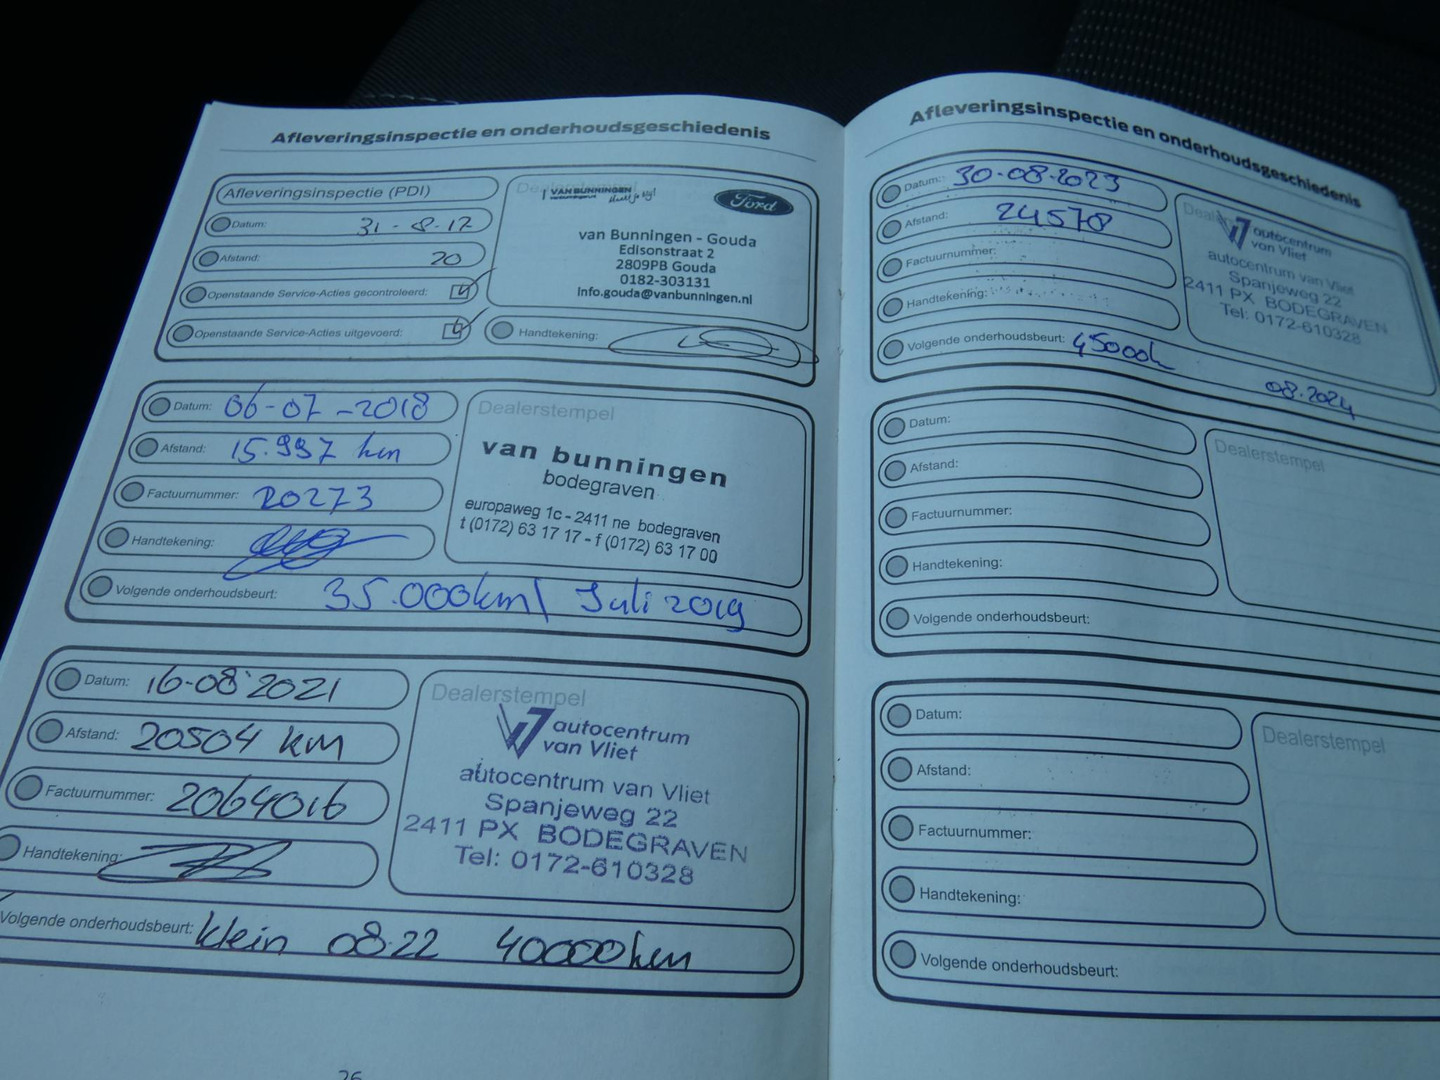 Afleveringsinspectie en onderhoudsgeschiedenis
Afleveringsinspectie (PDI)
Datum: 31-8-17
Afstand: 20
Openstaande Service-Acties gecontroleerd:
Openstaande Service-Acties uitgevoerd:
VAN BUNNINGEN
Ford
van Bunningen - Gouda
Edisonstraat 2
2809PB Gouda
0182-303131
info.gouda@vanbunningen.nl
Handtekening:
Datum: 06-07-2018
Afstand: 15.997 km
Factuurnummer: 20273
Handtekening:
Volgende onderhoudsbeurt: 35.000km/ Juli 2019
Dealerstempel
van bunningen
bodegraven
europaweg 1c - 2411 ne bodegraven
t (0172) 63 17 17 - f (0172) 63 17 00
Datum: 16-08-2021
Afstand: 20504 KM
Factuurnummer: 2064016
Handtekening:
Volgende onderhoudsbeurt: klein 08.22 40000km
Dealerstempel
autocentrum
van Vliet
autocentrum van Vliet
Spanjeweg 22
2411 PX BODEGRAVEN
Tel: 0172-610328
26
Afleveringsinspectie en onderhoudsgeschiedenis
Datum: 30-08-2023
Afstand: 24578
Factuurnummer:
Handtekening:
Volgende onderhoudsbeurt: 45000k 08.2024
autocentrum
van Vliet
autocentrum van Vliet
Spanjeweg 22
2411 PX BODEGRAVEN
Tel: 0172-610328
Datum:
Afstand:
Factuurnummer:
Handtekening:
Volgende onderhoudsbeurt:
Dealerstempel
Datum:
Afstand:
Factuurnummer:
Handtekening:
Volgende onderhoudsbeurt:
Dealerstempel